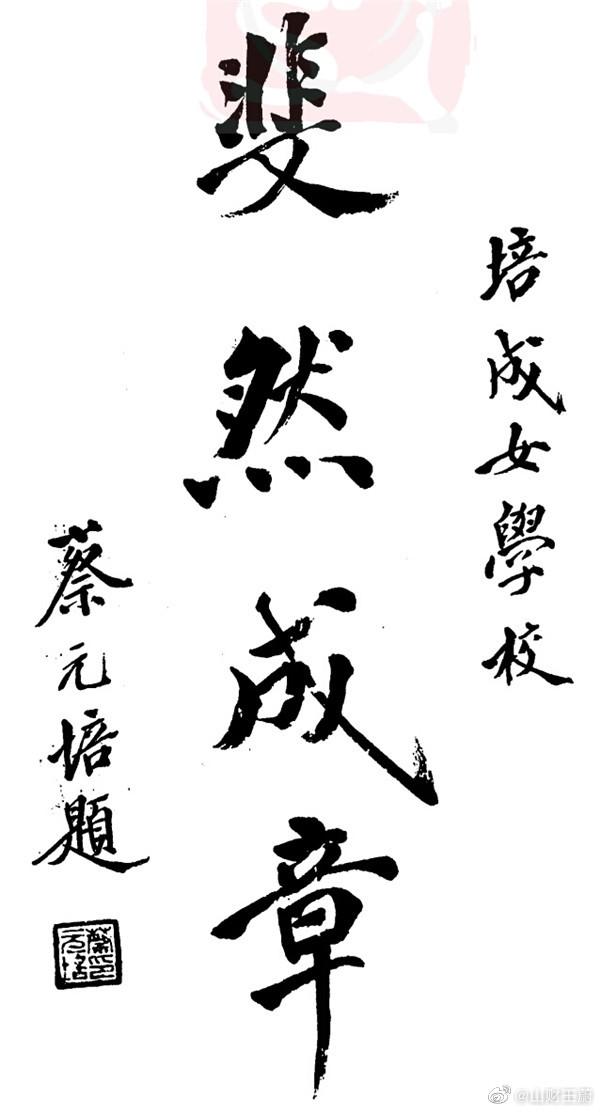 培成女學校
斐然成章
蔡元培題
蔡元培印
@山财王蔚